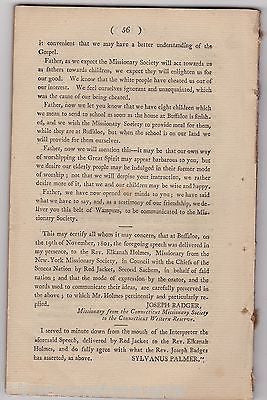 ( 56 )
it convenient that we may have a better understanding of the
Gospel.
Father, as we expect the Missionary Society will act towards us
as fathers towards children, we expect they will enlighten us for
our good. We know that the white people have cheated us out of
our interest. We feel ourselves ignorant and unacquainted, which
was the cause of our being cheated.
Father, now we let you know that we have eight children which
we mean to send to school as soon as the house at Buffaloe is finish-
ed, and we wish the Missionary Society to provide meal for them,
while they are at Buffaloe, but when the school is on our land we
will provide for them.
Father, now we will mention this—it may be that our own way
of worshipping the Great Spirit may appear barbarous to you, but
we desire our elderly people may be indulged in their former mode
of worship; not that we will despise your instruction, we rather
desire more of it, that we and our children may be wise and happy.
Father, we have now opened our minds to you; we have said
what we intended, and as a confirmation of our friendship, we de-
liver you this belt of Wampum, to be communicated to the Mis-
sionary Society.
This may certify all whom it may concern, that at Buffaloe, on
the 19th of November, 1801, the foregoing speech was delivered in
my presence, to the Rev. Elkanah Holmes, Missionary from the
New-York Missionary Society, in Council with the Chiefs of the
Seneca Nation by Red Jacket, Second Sachem, in behalf of said
nation; and that the mode of expression by the orator, and the
words used to communicate their ideas, are carefully preserved in
the above; to which Mr. Holmes pertinently and particularly re-
plied. JOSEPH BADGER,
Missionary from the Connecticut Missionary Society
to the Connecticut Western Reserve.
I served to minute down from the mouth of the Interpreter the
aforesaid Speech, delivered by Red Jacket to the Rev. Elkanah
Holmes, and do fully agree with what the Rev. Joseph Badger
has asserted, as above. SYLVANUS PALMER."